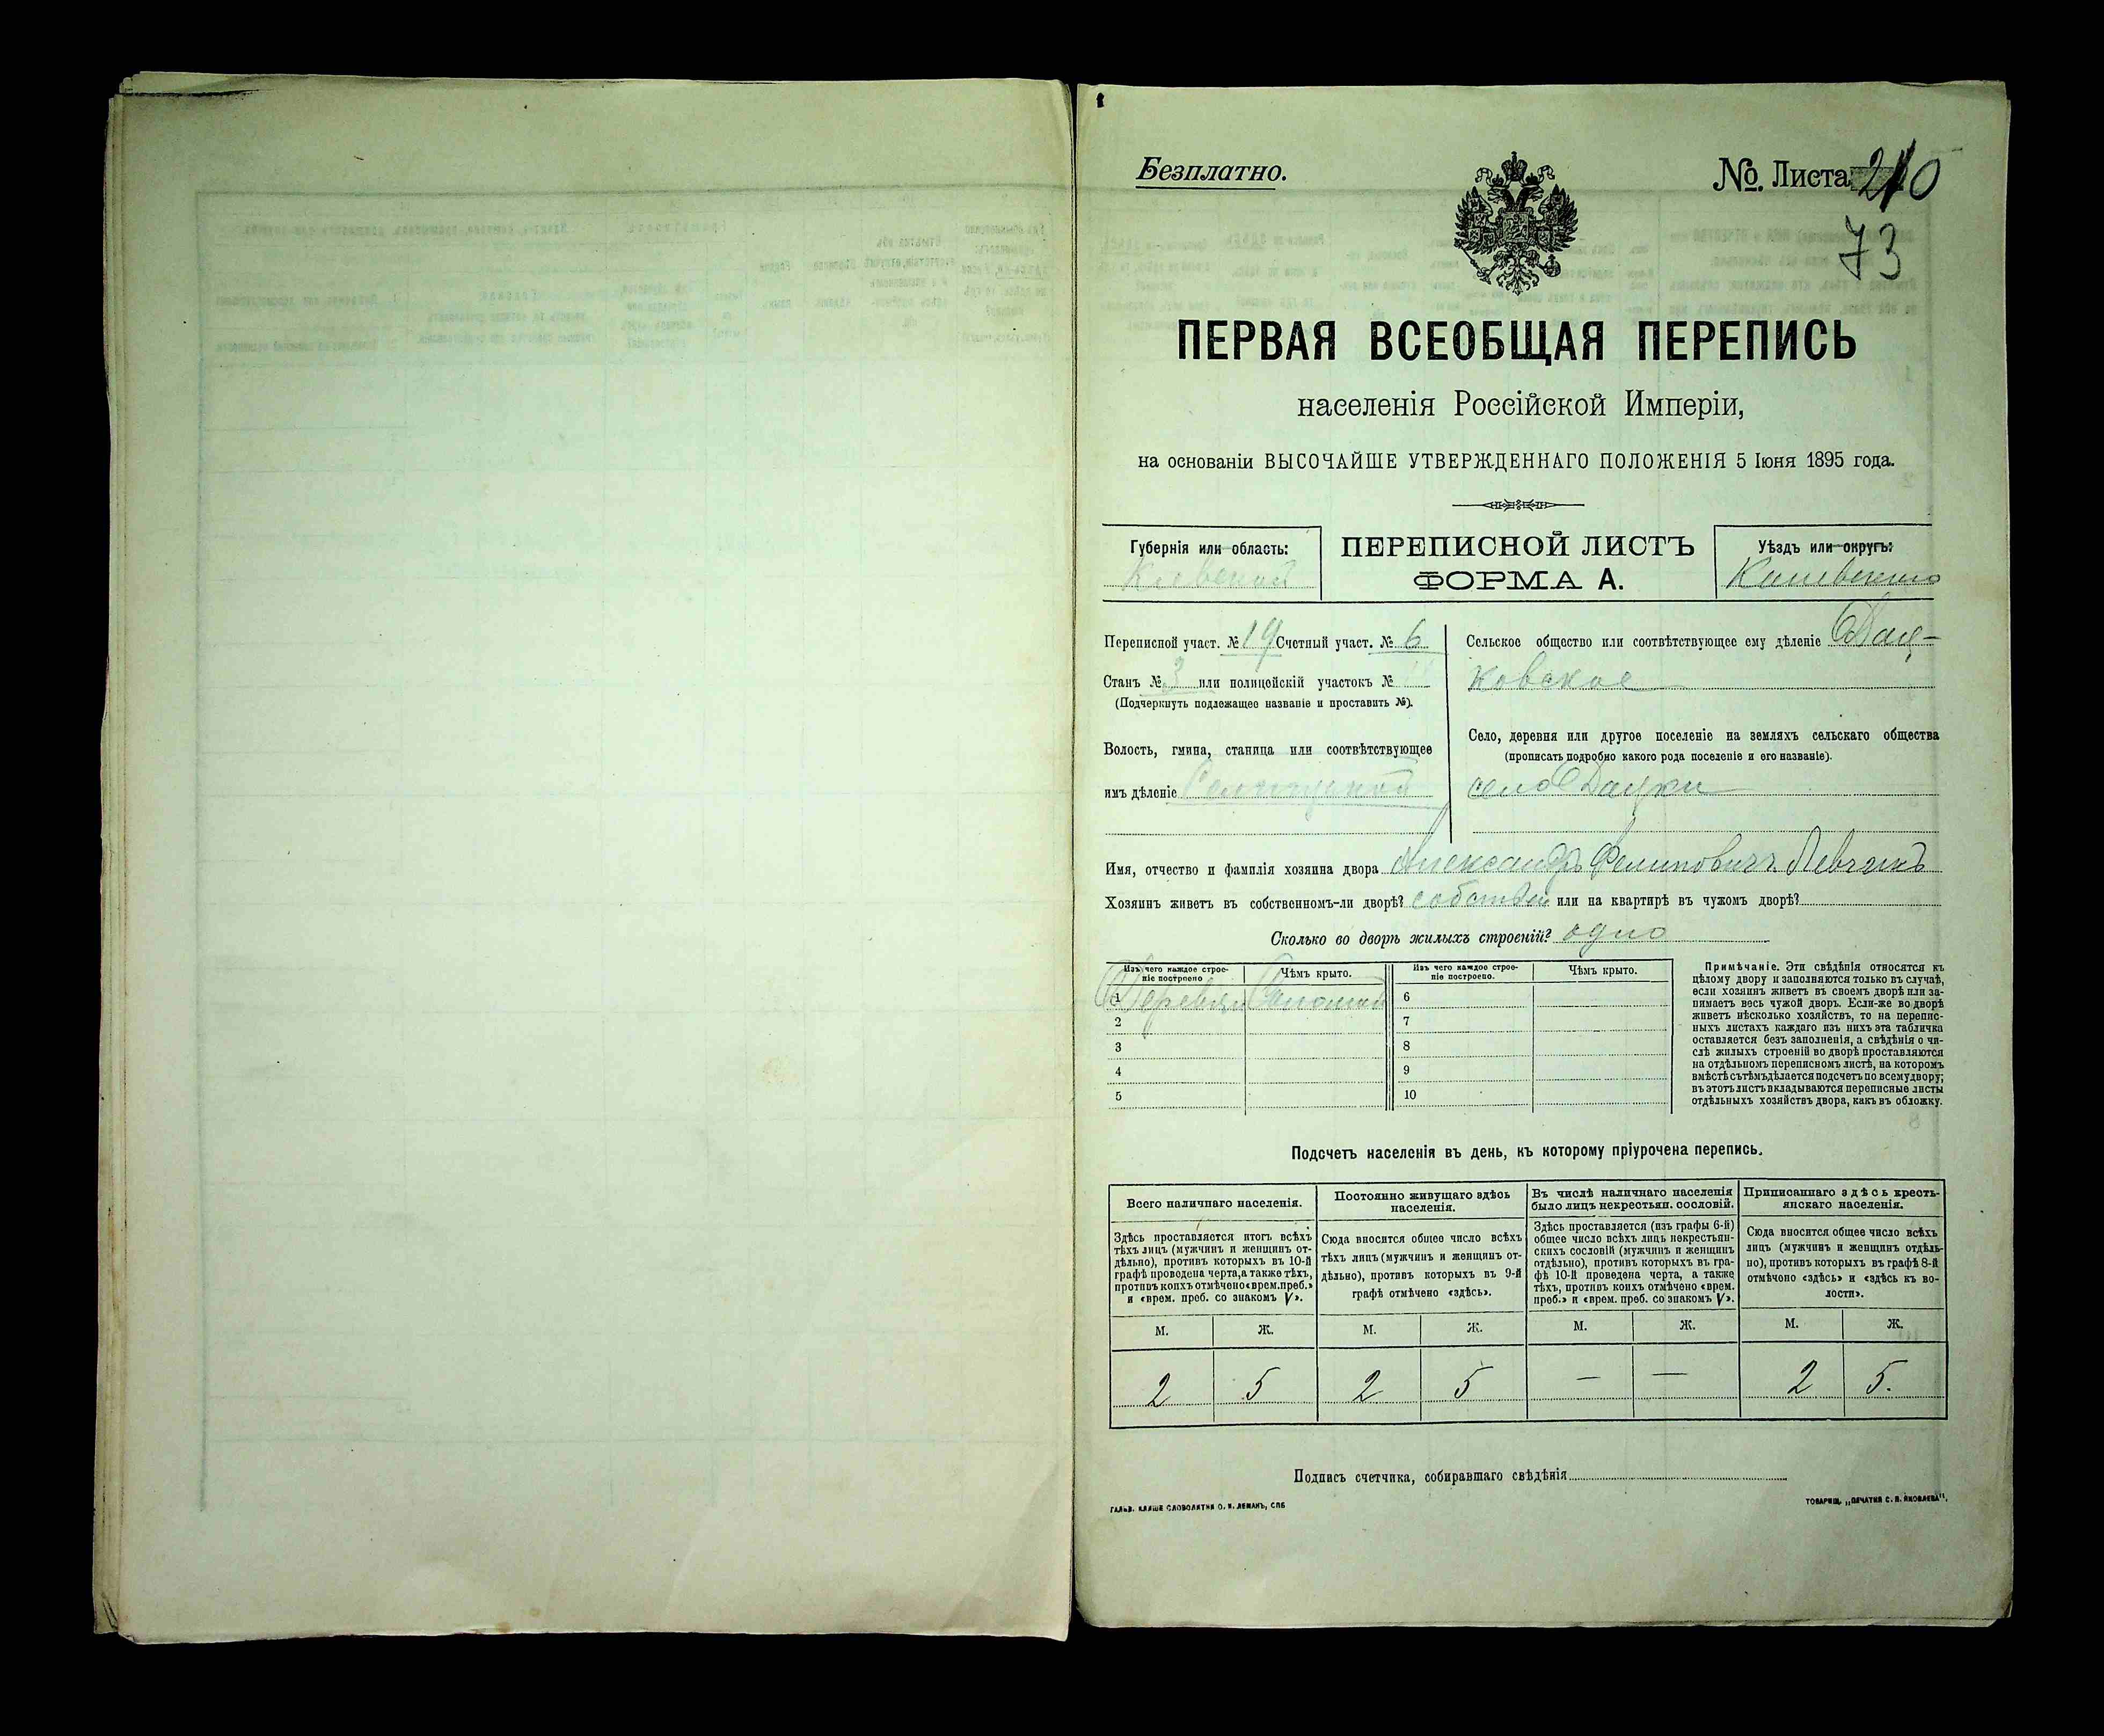 Безплатно.
№. Листа 210
73
ПЕРВАЯ ВСЕОБЩАЯ ПЕРЕПИСЬ
населенія Россійской Имперіи,
на основаніи ВЫСОЧАЙШЕ УТВЕРЖДЕННАГО ПОЛОЖЕНІЯ 5 Іюня 1895 года.
Губернія или область:
Кіевской
ПЕРЕПИСНОЙ ЛИСТЪ
ФОРМА А.
Уѣздъ или округъ:
Каневскаго
Переписной участ. № 19 Счетный участ. № 6
Станъ № 3 или полицейскій участокъ №
(Подчеркнуть подлежащее названіе и проставить №).
Волость, гмина, станица или соотвѣтствующее
имъ дѣленіе
Сельское общество или соотвѣтствующее ему дѣленіе Дац-
ковское
Село, деревня или другое поселеніе на земляхъ сельскаго общества
(прописать подробно какого рода поселеніе и его названіе).
село Дацки
Имя, отчество и фамилія хозяина двора Александръ Филиповичъ Левчикъ
Хозяинъ живетъ въ собственномъ-ли дворѣ? собствен или на квартирѣ въ чужомъ дворѣ?
Сколько во дворѣ жилыхъ строеній? одно
Изъ чего каждое строе-
ніе построено
Чѣмъ крыто.
Изъ чего каждое строе-
ніе построено.
Чѣмъ крыто.
1 Деревян Соломой
2
3
4
5
6
7
8
9
10
Примѣчаніе. Эти свѣдѣнія относятся къ
цѣлому двору и заполняются только въ случаѣ,
если хозяинъ живетъ въ своемъ дворѣ или за-
нимаетъ весь чужой дворъ. Если-же во дворѣ
живетъ нѣсколько хозяйствъ, то на перепис-
ныхъ листахъ каждаго изъ нихъ эта табличка
оставляется безъ заполненія, а свѣдѣнія о чи-
слѣ жилыхъ строеній во дворѣ проставляются
на отдѣльномъ переписномъ листѣ, на которомъ
вмѣстѣ съ тѣмъ дѣлается подсчетъ по всему двору;
въ этотъ листъ вкладываются переписные листы
отдѣльныхъ хозяйствъ двора, какъ въ обложку.
Подсчетъ населенія въ день, къ которому пріурочена перепись.
Всего наличнаго населенія.
Здѣсь проставляется итогъ всѣхъ
тѣхъ лицъ (мужчинъ и женщинъ от-
дѣльно), противъ которыхъ въ 10-й
графѣ проведена черта, а также тѣхъ,
противъ коихъ отмѣчено «врем. преб.»
и «врем. преб. со знакомъ V».
Постоянно живущаго здѣсь
населенія.
Сюда вносится общее число всѣхъ
тѣхъ лицъ (мужчинъ и женщинъ от-
дѣльно), противъ которыхъ въ 9-й
графѣ отмѣчено «здѣсь».
Въ числѣ наличнаго населенія
было лицъ некрестьян. сословій.
Здѣсь проставляется (изъ графы 6-й)
общее число всѣхъ лицъ некрестьян-
скихъ сословій (мужчинъ и женщинъ
отдѣльно), противъ которыхъ въ гра-
фѣ 10-й проведена черта, а также
тѣхъ, противъ коихъ отмѣчено «врем.
преб.» и «врем. преб. со знакомъ V».
Приписаннаго здѣсь кресть-
янскаго населенія.
Сюда вносится общее число всѣхъ
лицъ (мужчинъ и женщинъ отдѣль-
но), противъ которыхъ въ графѣ 8-й
отмѣчено «здѣсь» и «здѣсь къ во-
лости».
М. Ж. М. Ж. М. Ж. М. Ж.
2 5 2 5 — — 2 5.
Подпись счетчика, собиравшаго свѣдѣнія
ГАЛЬВ. КЛИШЕ СЛОВОЛИТНИ О. И. ЛЕМАНЪ, СПБ
ТОВАРИЩ. „ПЕЧАТНЯ С. П. ЯКОВЛЕВА".